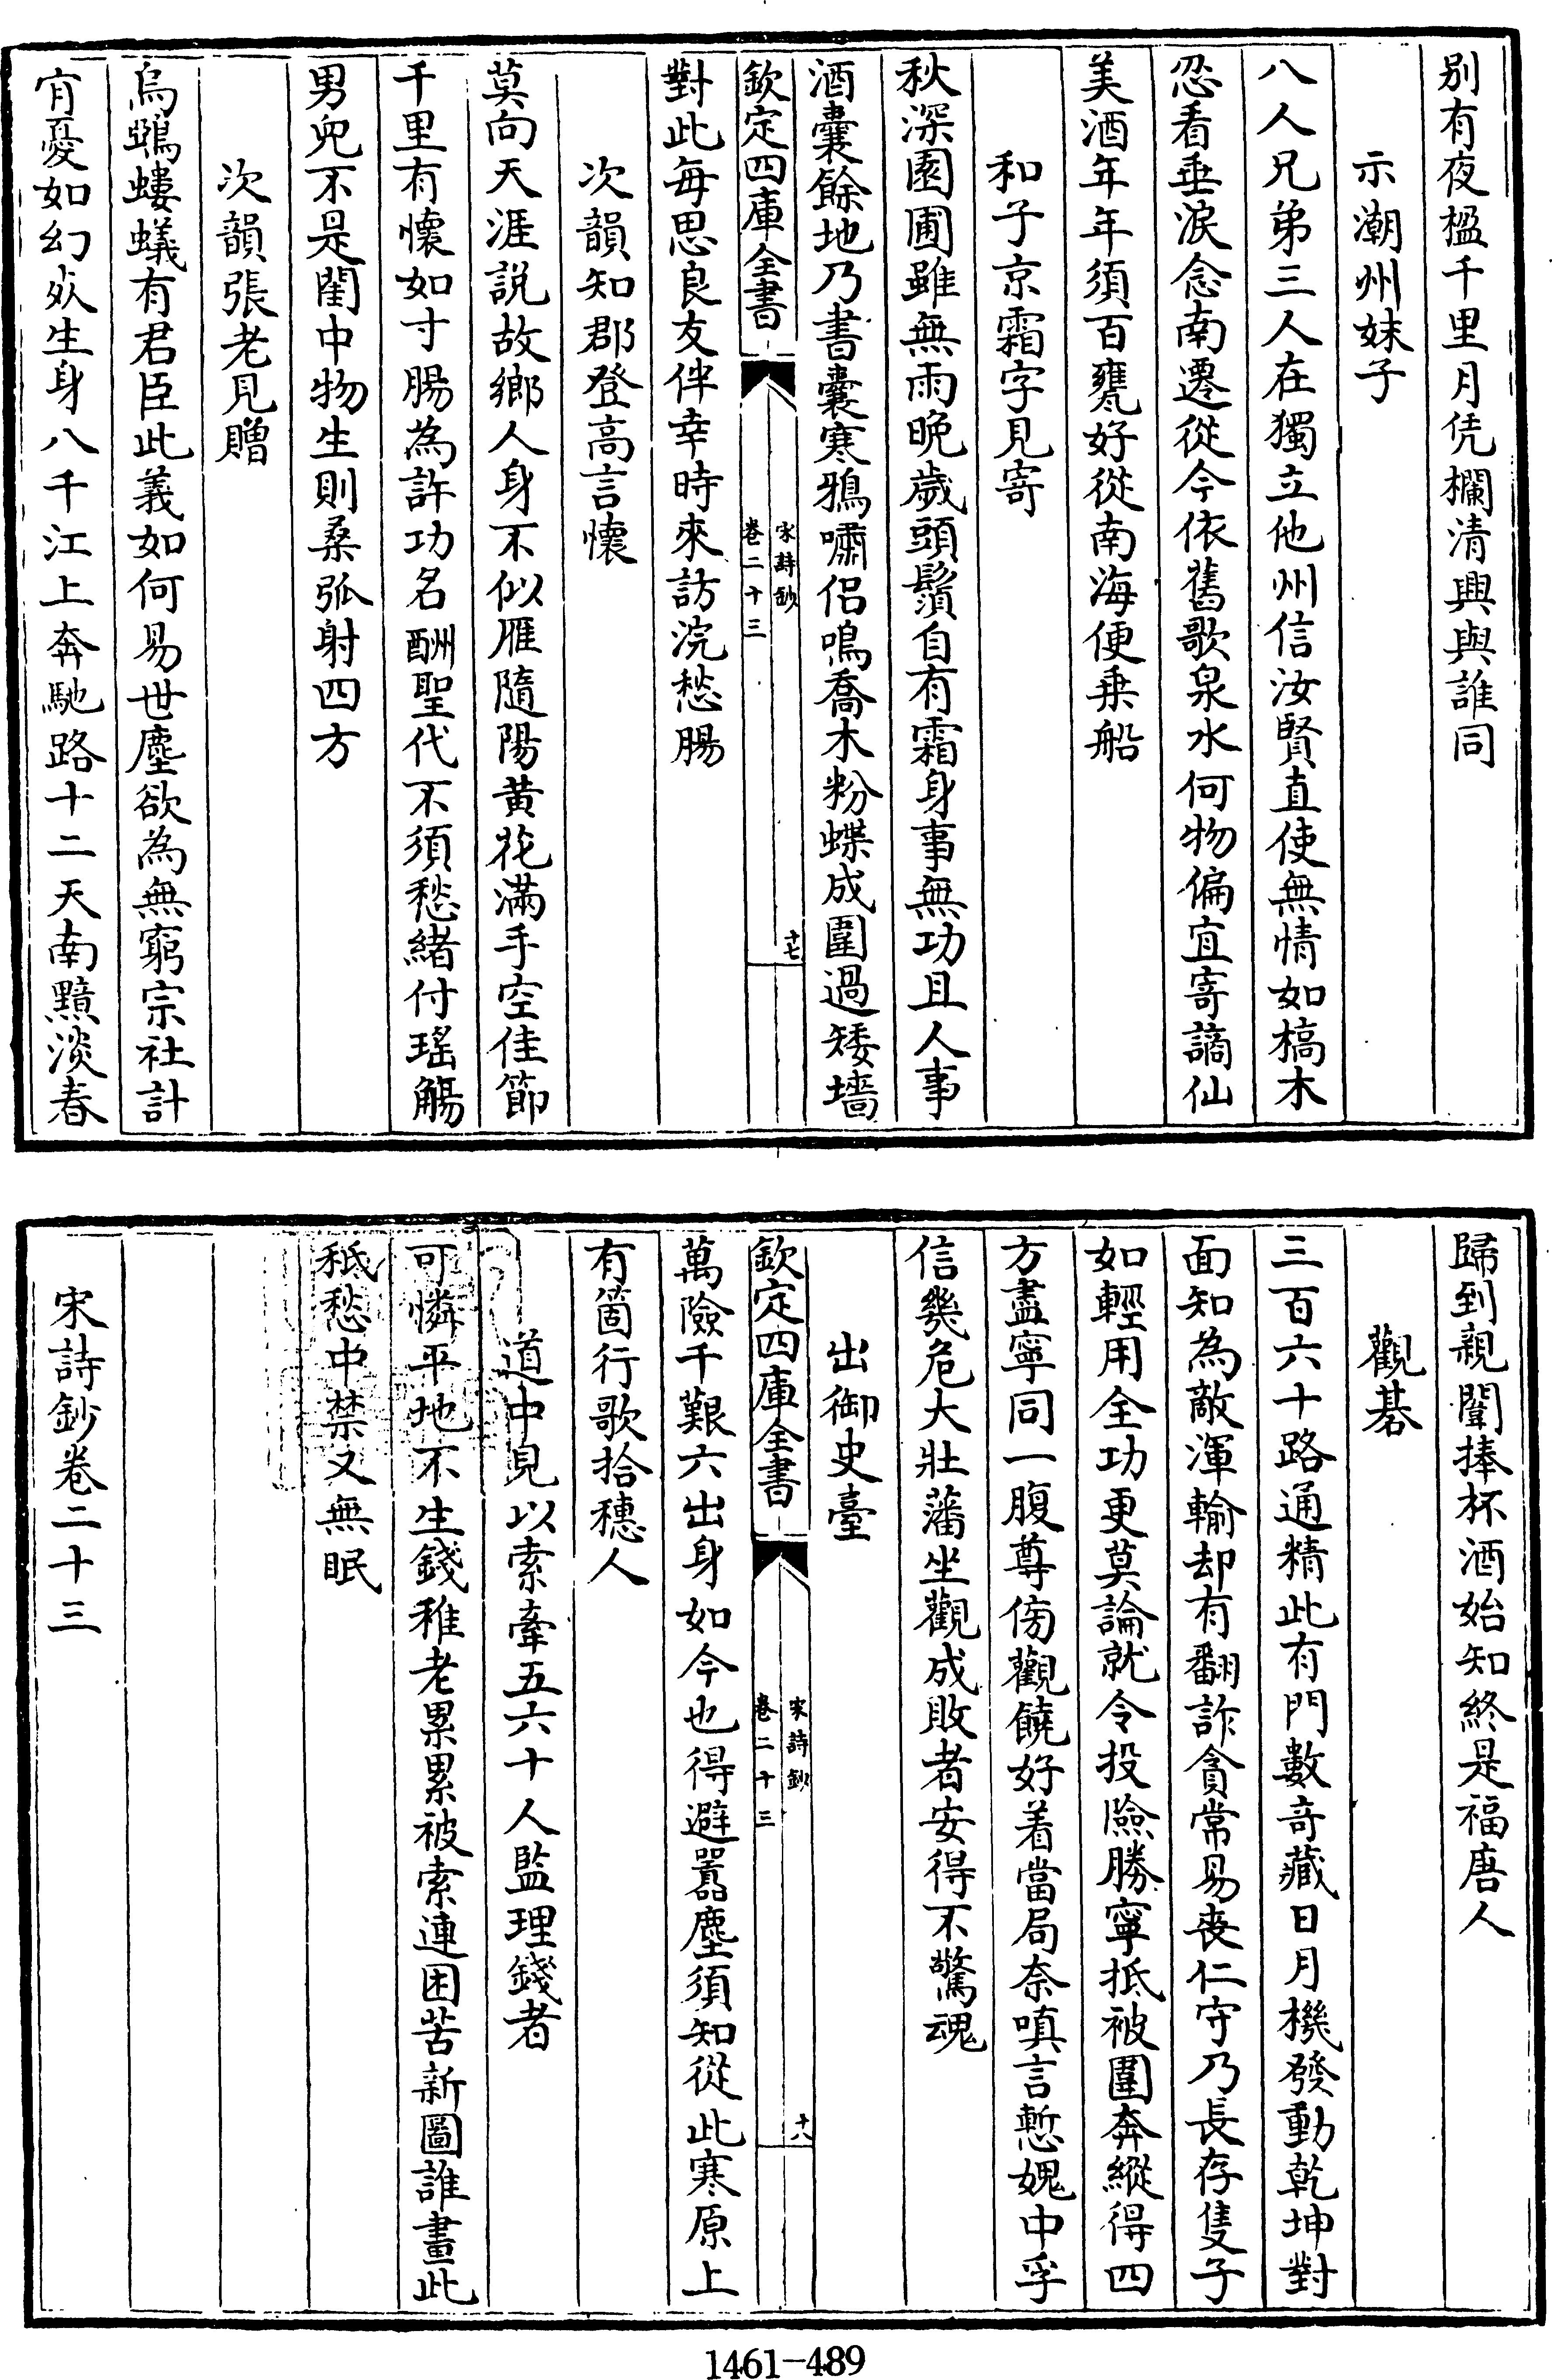 别有夜楹千里月凭欄清興與誰同
示潮州妹子
八人兄弟三人在獨立他州信汝賢直使無情如槁木
忍看垂淚念南遷從今依舊歌泉水何物偏宜寄謫仙
美酒年年須百甕好從南海便乗船
和子京霜字見寄
秋深園圃雖無雨晚歲頭鬚自有霜身事無功且人事
酒囊餘地乃書囊寒鴉嘯侣鳴喬木粉蝶成圍過矮墻
欽定四庫全書
宋詩鈔
卷二十三
十七
對此每思良友伴幸時來訪浣愁腸
次韻知郡登高言懷
莫向天涯説故鄉人身不似雁隨陽黄花滿手空佳節
千里有懷如寸腸為許功名酬聖代不須愁緒付瑤觴
男兒不是閨中物生則桑弧射四方
次韻張老見贈
烏鵶螻蟻有君臣此義如何易世塵欲為無窮宗社計
宵憂如幻㷊生身八千江上奔馳路十二天南黯淡春
歸到親闈捧杯酒始知終是福唐人
觀碁
三百六十路通精此有門數奇藏日月機發動乾坤對
面知為敵渾輸却有翻詐貪常易喪仁守乃長存隻子
如輕用全功更莫論就令投險勝寧抵被圍奔縱得四
方盡寧同一腹尊傍觀饒好着當局奈嗔言慙媿中孚
信幾危大壯藩坐觀成敗者安得不驚魂
出御史臺
欽定四庫全書
宋詩鈔
卷二十三
十八
萬險千艱六出身如今也得避囂塵須知從此寒原上
有箇行歌拾穗人
道中見以索牽五六十人監理錢者
可憐平地不生錢稚老累累被索連困苦新圖誰畫此
秪愁中禁又無眠
宋詩鈔卷二十三
1461-489